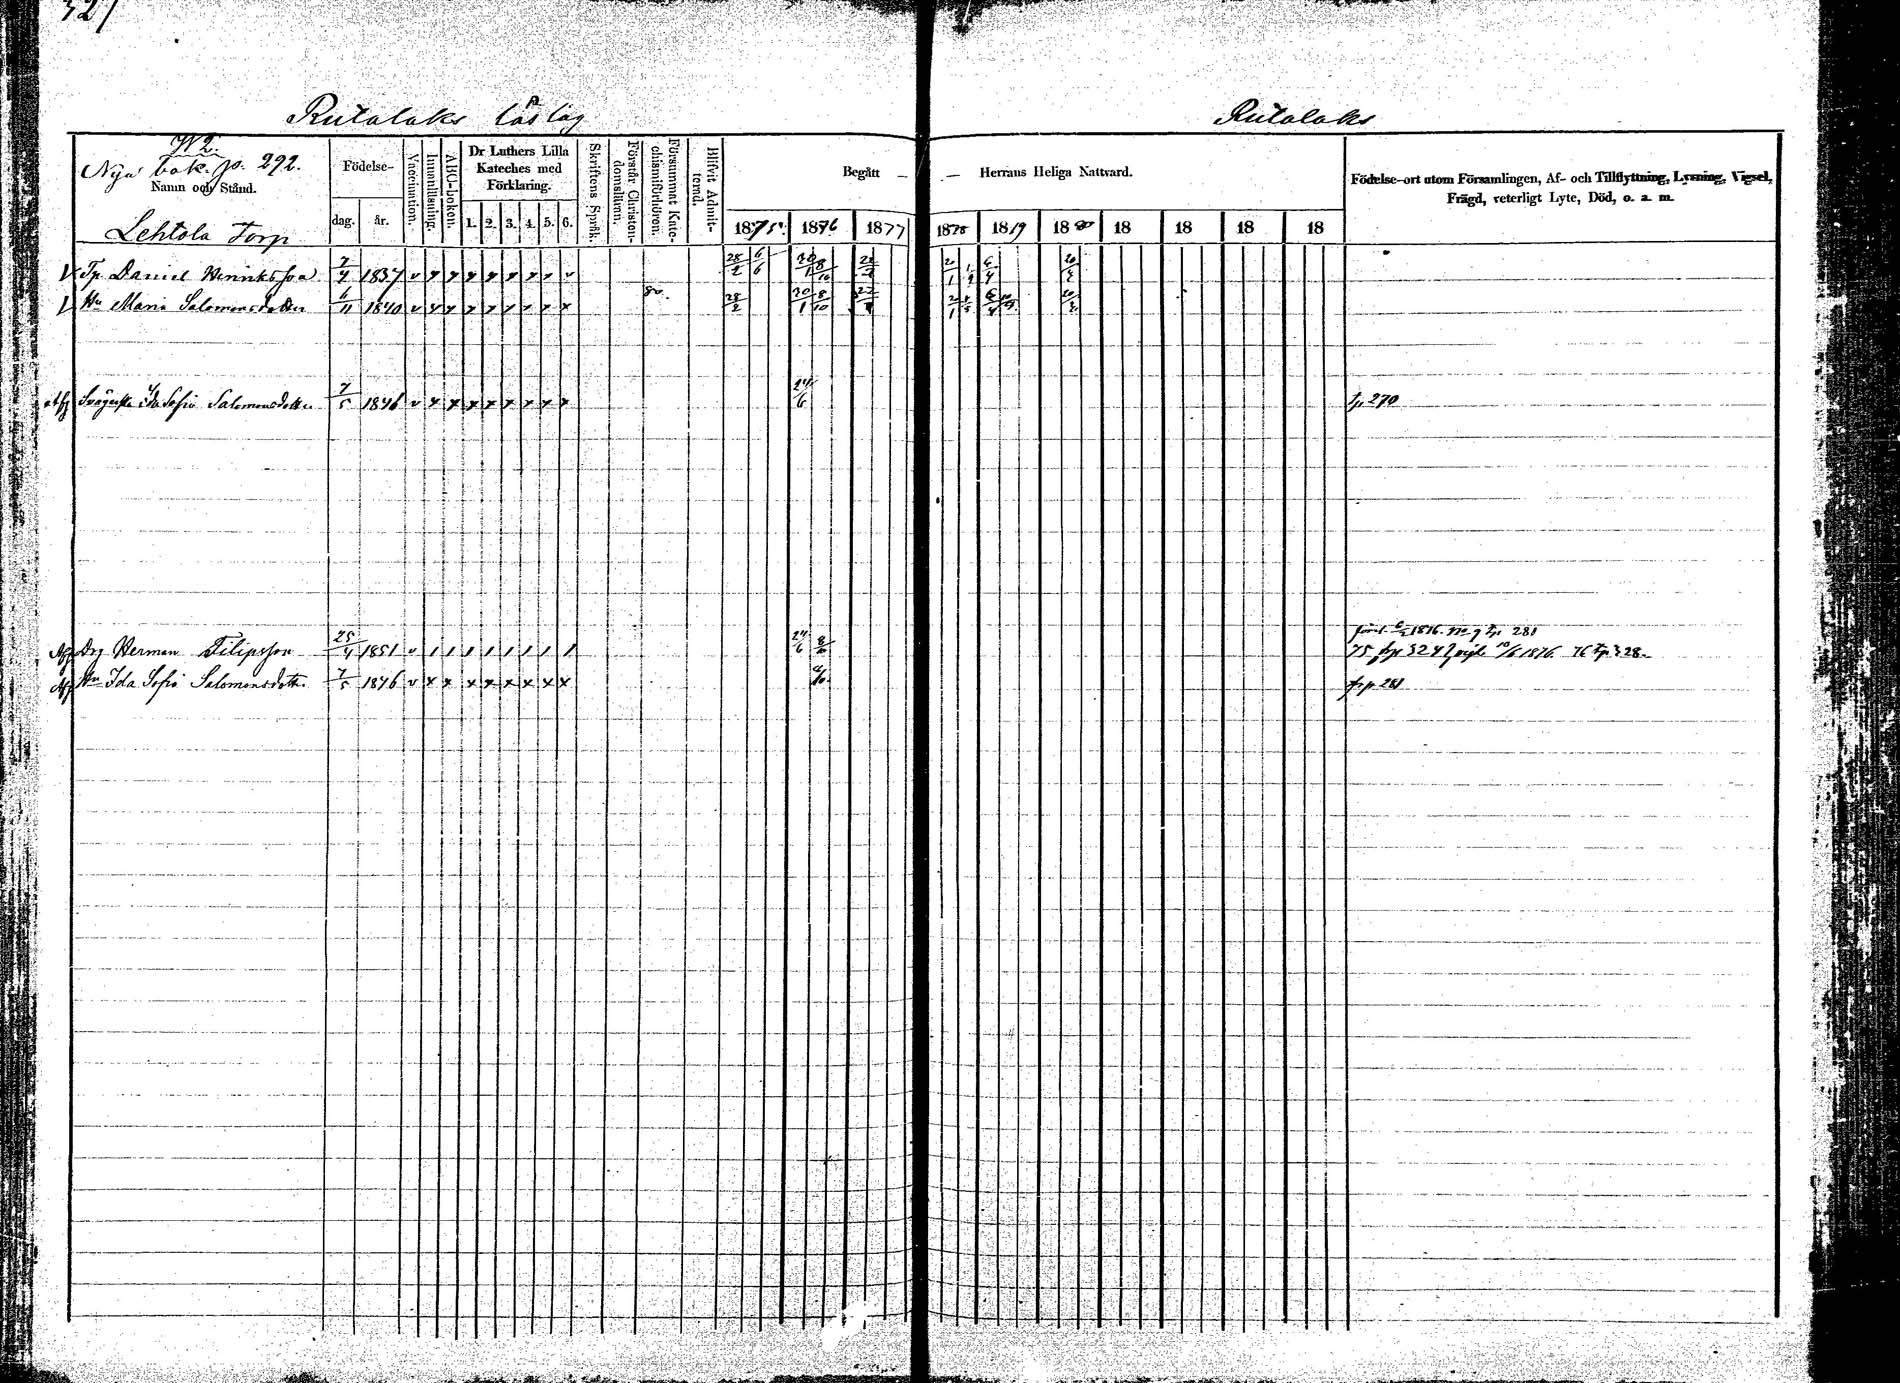 327
Rutalaks låslag
Rutalaks
Nya bok. p. 292.
Namn och Stånd.
Lehtola Torp
Födelse-
dag. år.
Vaccination.
Innanläsning.
ABC-boken.
Dr Luthers Lilla
Kateches med
Förklaring.
1. 2. 3. 4. 5. 6.
Skriftens Språk.
Förstår Christen-
domslären.
Försummat Kate-
chismiförhören.
Blifvit Admit-
terad.
Begått —
— Herrans Heliga Nattvard.
1875 1876 1877 1878 1879 1880 18 18 18 18
Födelse-ort utom Församlingen, Af- och Tillflyttning, Lysning, Vigsel,
Frägd, veterligt Lyte, Död, o. a. m.
Tp. Daniel Henriksson 1837 v x x x x x x x v
Hu Maria Salomonsdotter 6/11 1840 v x x x x x x x x 80. 28/2 20/1 8/10
Ida Sofia Salomonsdotter 7/5 1846 v x x x x x x x x 24/6 p 270
1876. 281
Drg Herman Filipsson 25/4 1851 v / / / / / / / / 24/6 8/10 75 324 10/6 1876. 76 328
Hu Ida Sofia Salomonsdotter 7/5 1846 v x x x x x x x x fr p 281